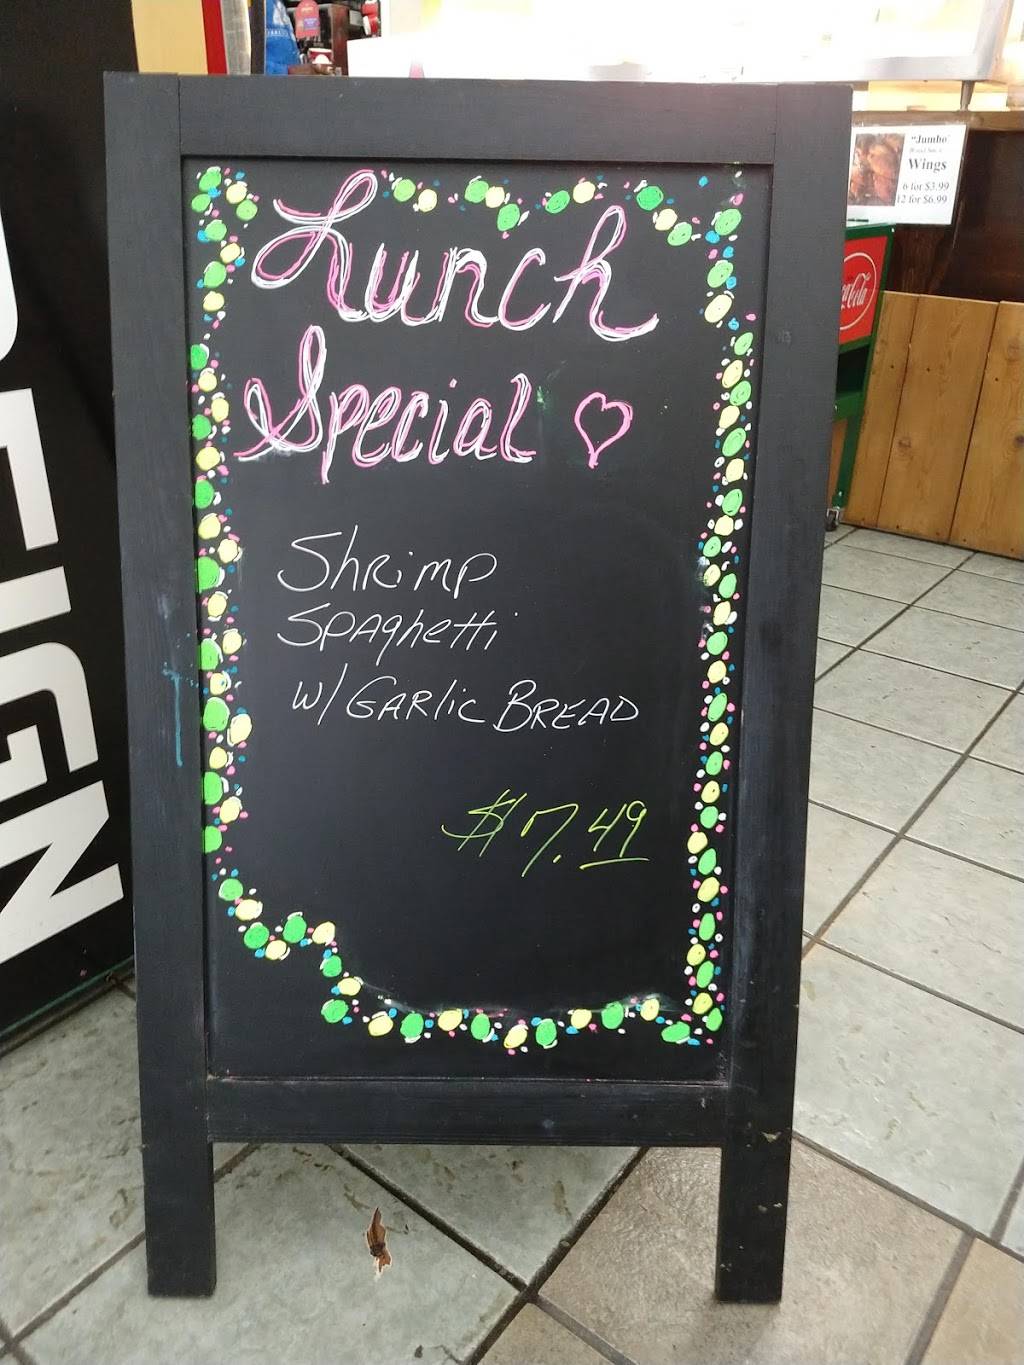 Lunch
Special
Shrimp
Spaghetti
w/ Garlic Bread
$7.49
"Jumbo"
Wings
6 for $3.99
12 for $6.99
Coca-Cola
EIGN